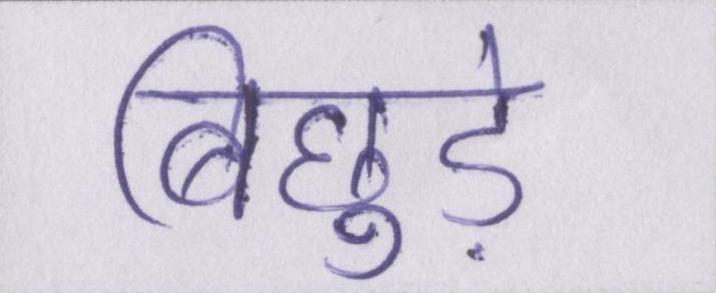 बिछुड़े